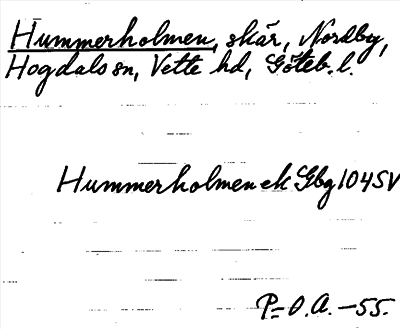 Hummerholmen, skär, Nordby,
Hogdals sn, Vette hd, Göteb. l.
Hummerholmen ek Gbg 104SV
P=O.A. -55.